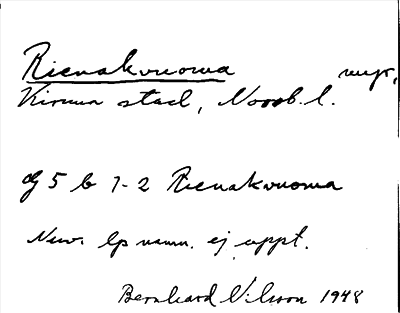 Rienakvuoma myr,
Kiruna stad, Norrb. l.
Rienakvuoma
Nuv. lp namn. ej uppt.
Bernhard Nilsson 1948